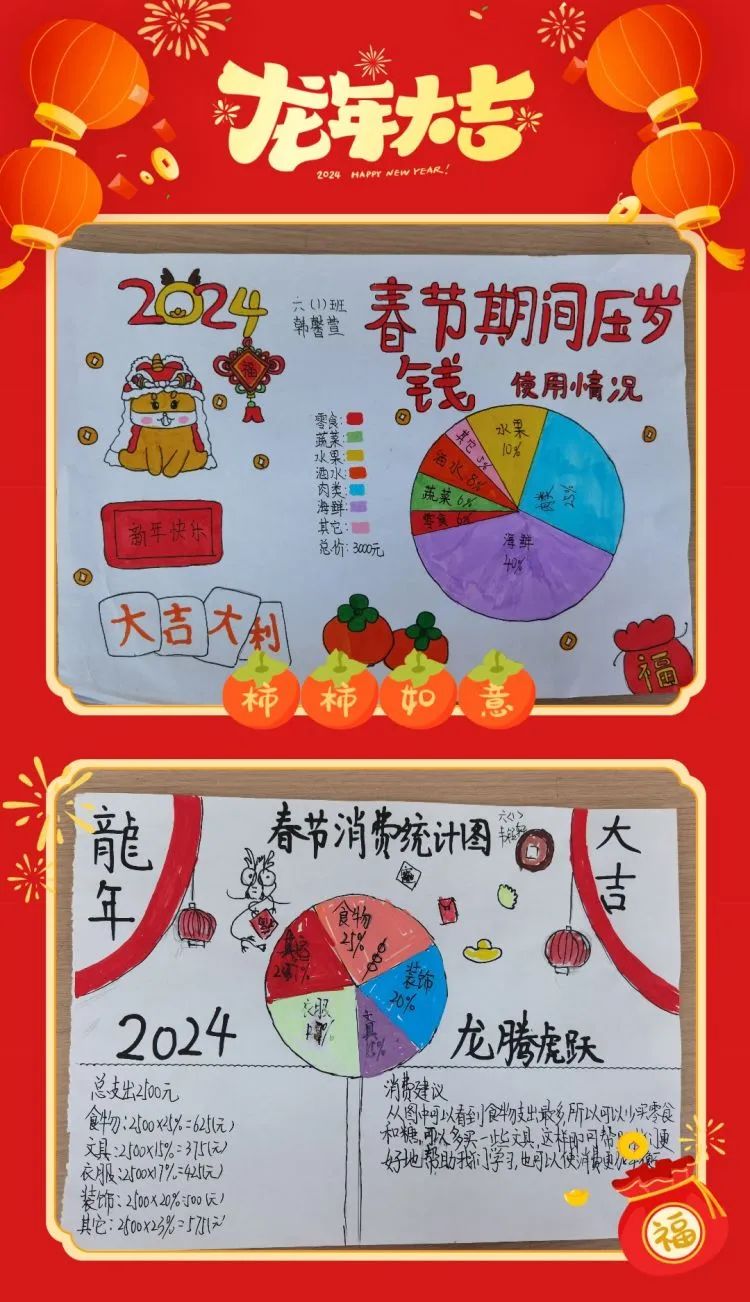 龙年大吉
2024 HAPPY NEW YEAR!
2024
六(1)班
韩馨萱
春节期间压岁
钱 使用情况
零食:
蔬菜:
水果:
酒水:
肉类:
海鲜:
其它:
总价:3000元
水果
10%
其它 5%
酒水 8%
蔬菜 6%
零食 6%
肉类 25%
海鲜
40%
福
新年快乐
大吉大利
福
柿柿如意
龍年
春节消费统计图
六(1)
大吉
食物
25%
装饰
20%
文具
15%
衣服
其它
2024
龙腾虎跃
总支出2500元
食物:2500×25%=625(元)
文具:2500×15%=375(元)
衣服:2500×17%=425(元)
装饰:2500×20%=500(元)
其它:2500×23%=575(元)
消费建议
从图中可以看到食物支出最多,所以可以少买零食
和糖,可以多买一些文具,这样即可帮
好地帮助我们学习,也可以使消费更
福